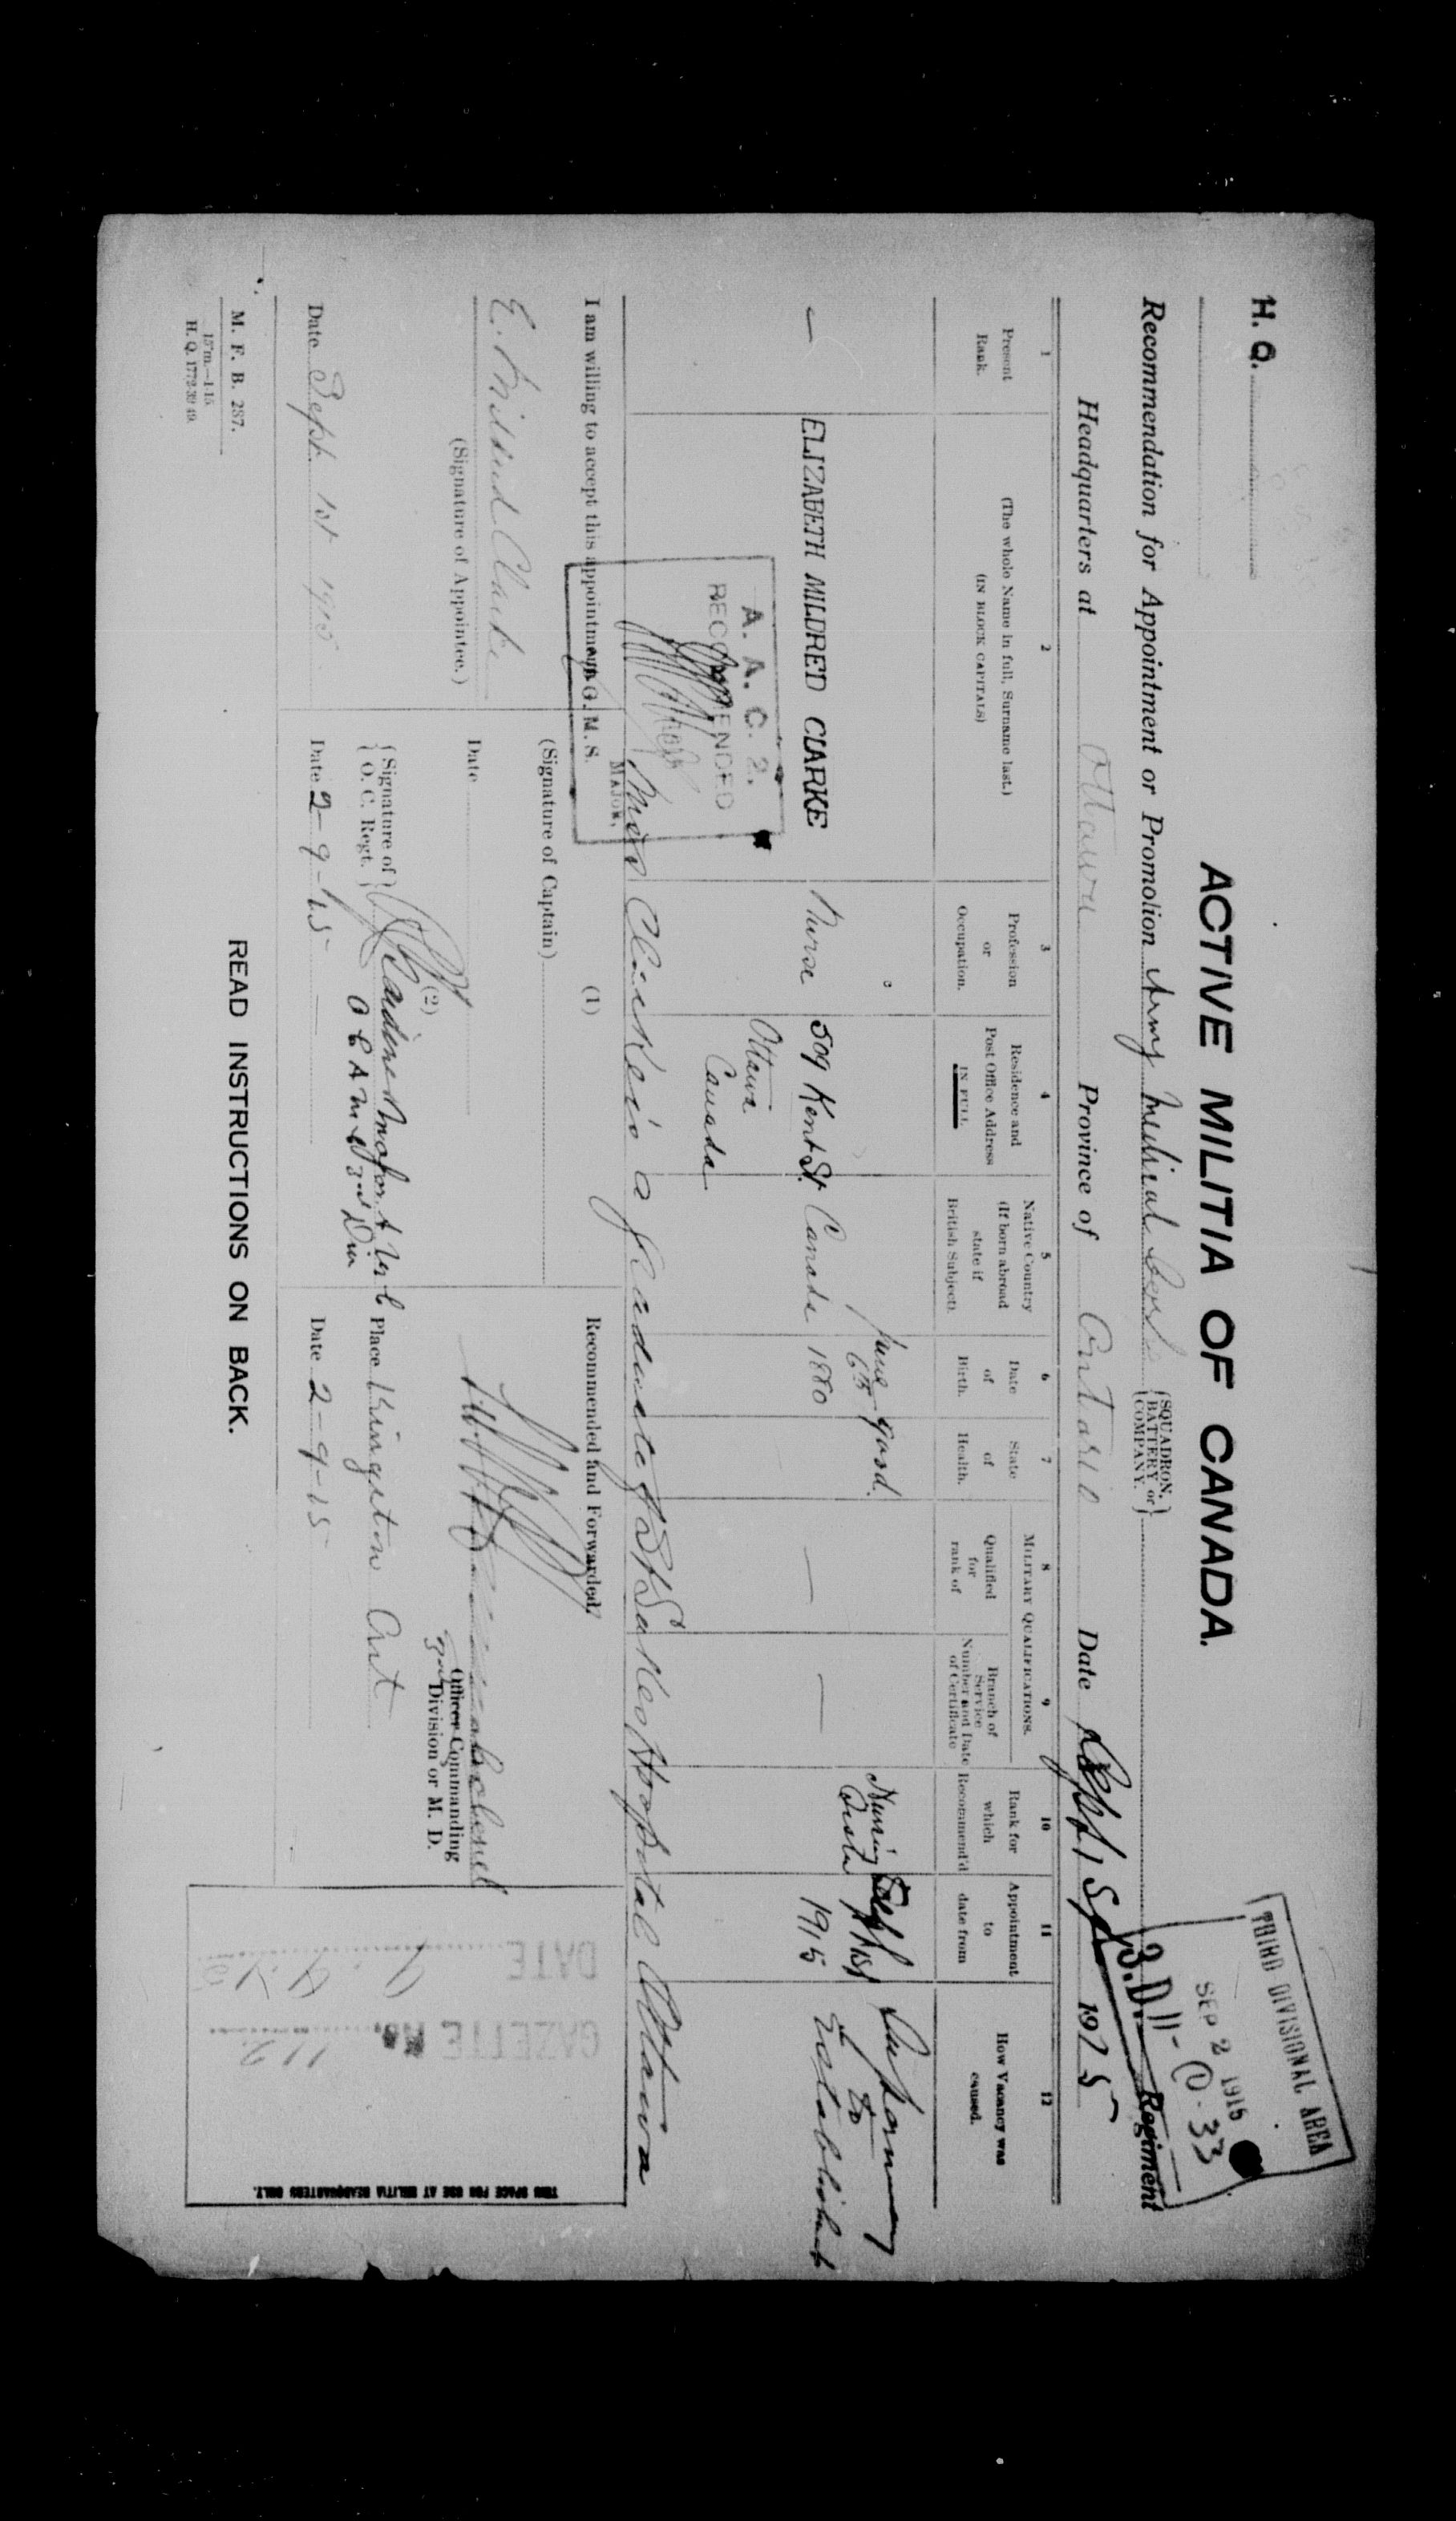 H. Q.
THIRD DIVISIONAL AREA
SEP 2 1915
3.D.11-①-33
ACTIVE MILITIA OF CANADA.
Recommendation for Appointment or Promotion Army Medical Corps {SQUADRON, BATTERY or COMPANY.} Regiment
Headquarters at Ottawa Province of Ontario Date Sept 1st 1915
1
Present
Rank.
2
(The whole Name in full, Surname last.)
(IN BLOCK CAPITALS)
3
Profession
or
Occupation.
4
Residence and
Post Office Address
IN FULL
5
Native Country
(If born abroad
state if
British Subject).
6
Date
of
Birth.
7
State
of
Health.
MILITARY QUALIFICATIONS.
8
Qualified
for
rank of
9
Branch of
Service
Number and Date
of Certificate
10
Rank for
which
Recommend'd
11
Appointment
to
date from
12
How Vacancy was
caused.
—
ELIZABETH MILDRED CLARKE
Nurse
509 Kent St.
Ottawa
Canada
Canada
June
6th
1880
good.
—
—
Nursing
Sister
Sept 1st
1915
to
Establishment
A. A. C. 2.
RECOMMENDED
MAJOR,
A. G. M. S.
Miss Clarke is a graduate of St Lukes Hospital Ottawa
I am willing to accept this appointment
E. Mildred Clarke
(Signature of Appointee.)
Date Sept. 1st 1915
(1)
(Signature of Captain)
Date
(2)
{Signature of
O. C. Regt.}
Date 2-9-15
Recommended and Forwarded,
Officer Commanding
3rd Division or M. D.
Place Kingston Ont
Date 2-9-15
DATE
GAZETTE No. 112
THIS SPACE FOR USE AT MILITIA HEADQUARTERS ONLY.
M. F. B. 237.
15m.—1-15.
H. Q. 1772-39 49.
READ INSTRUCTIONS ON BACK.